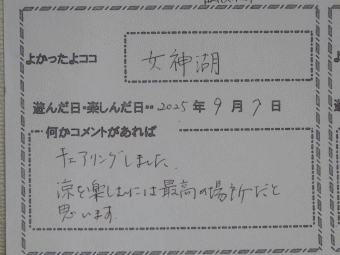 よかったよココ
女神湖
遊んだ日・楽しんだ日・・2025年9月7日
何かコメントがあれば
チェアリングしました
涼を楽しむには最高の場所だと
思います